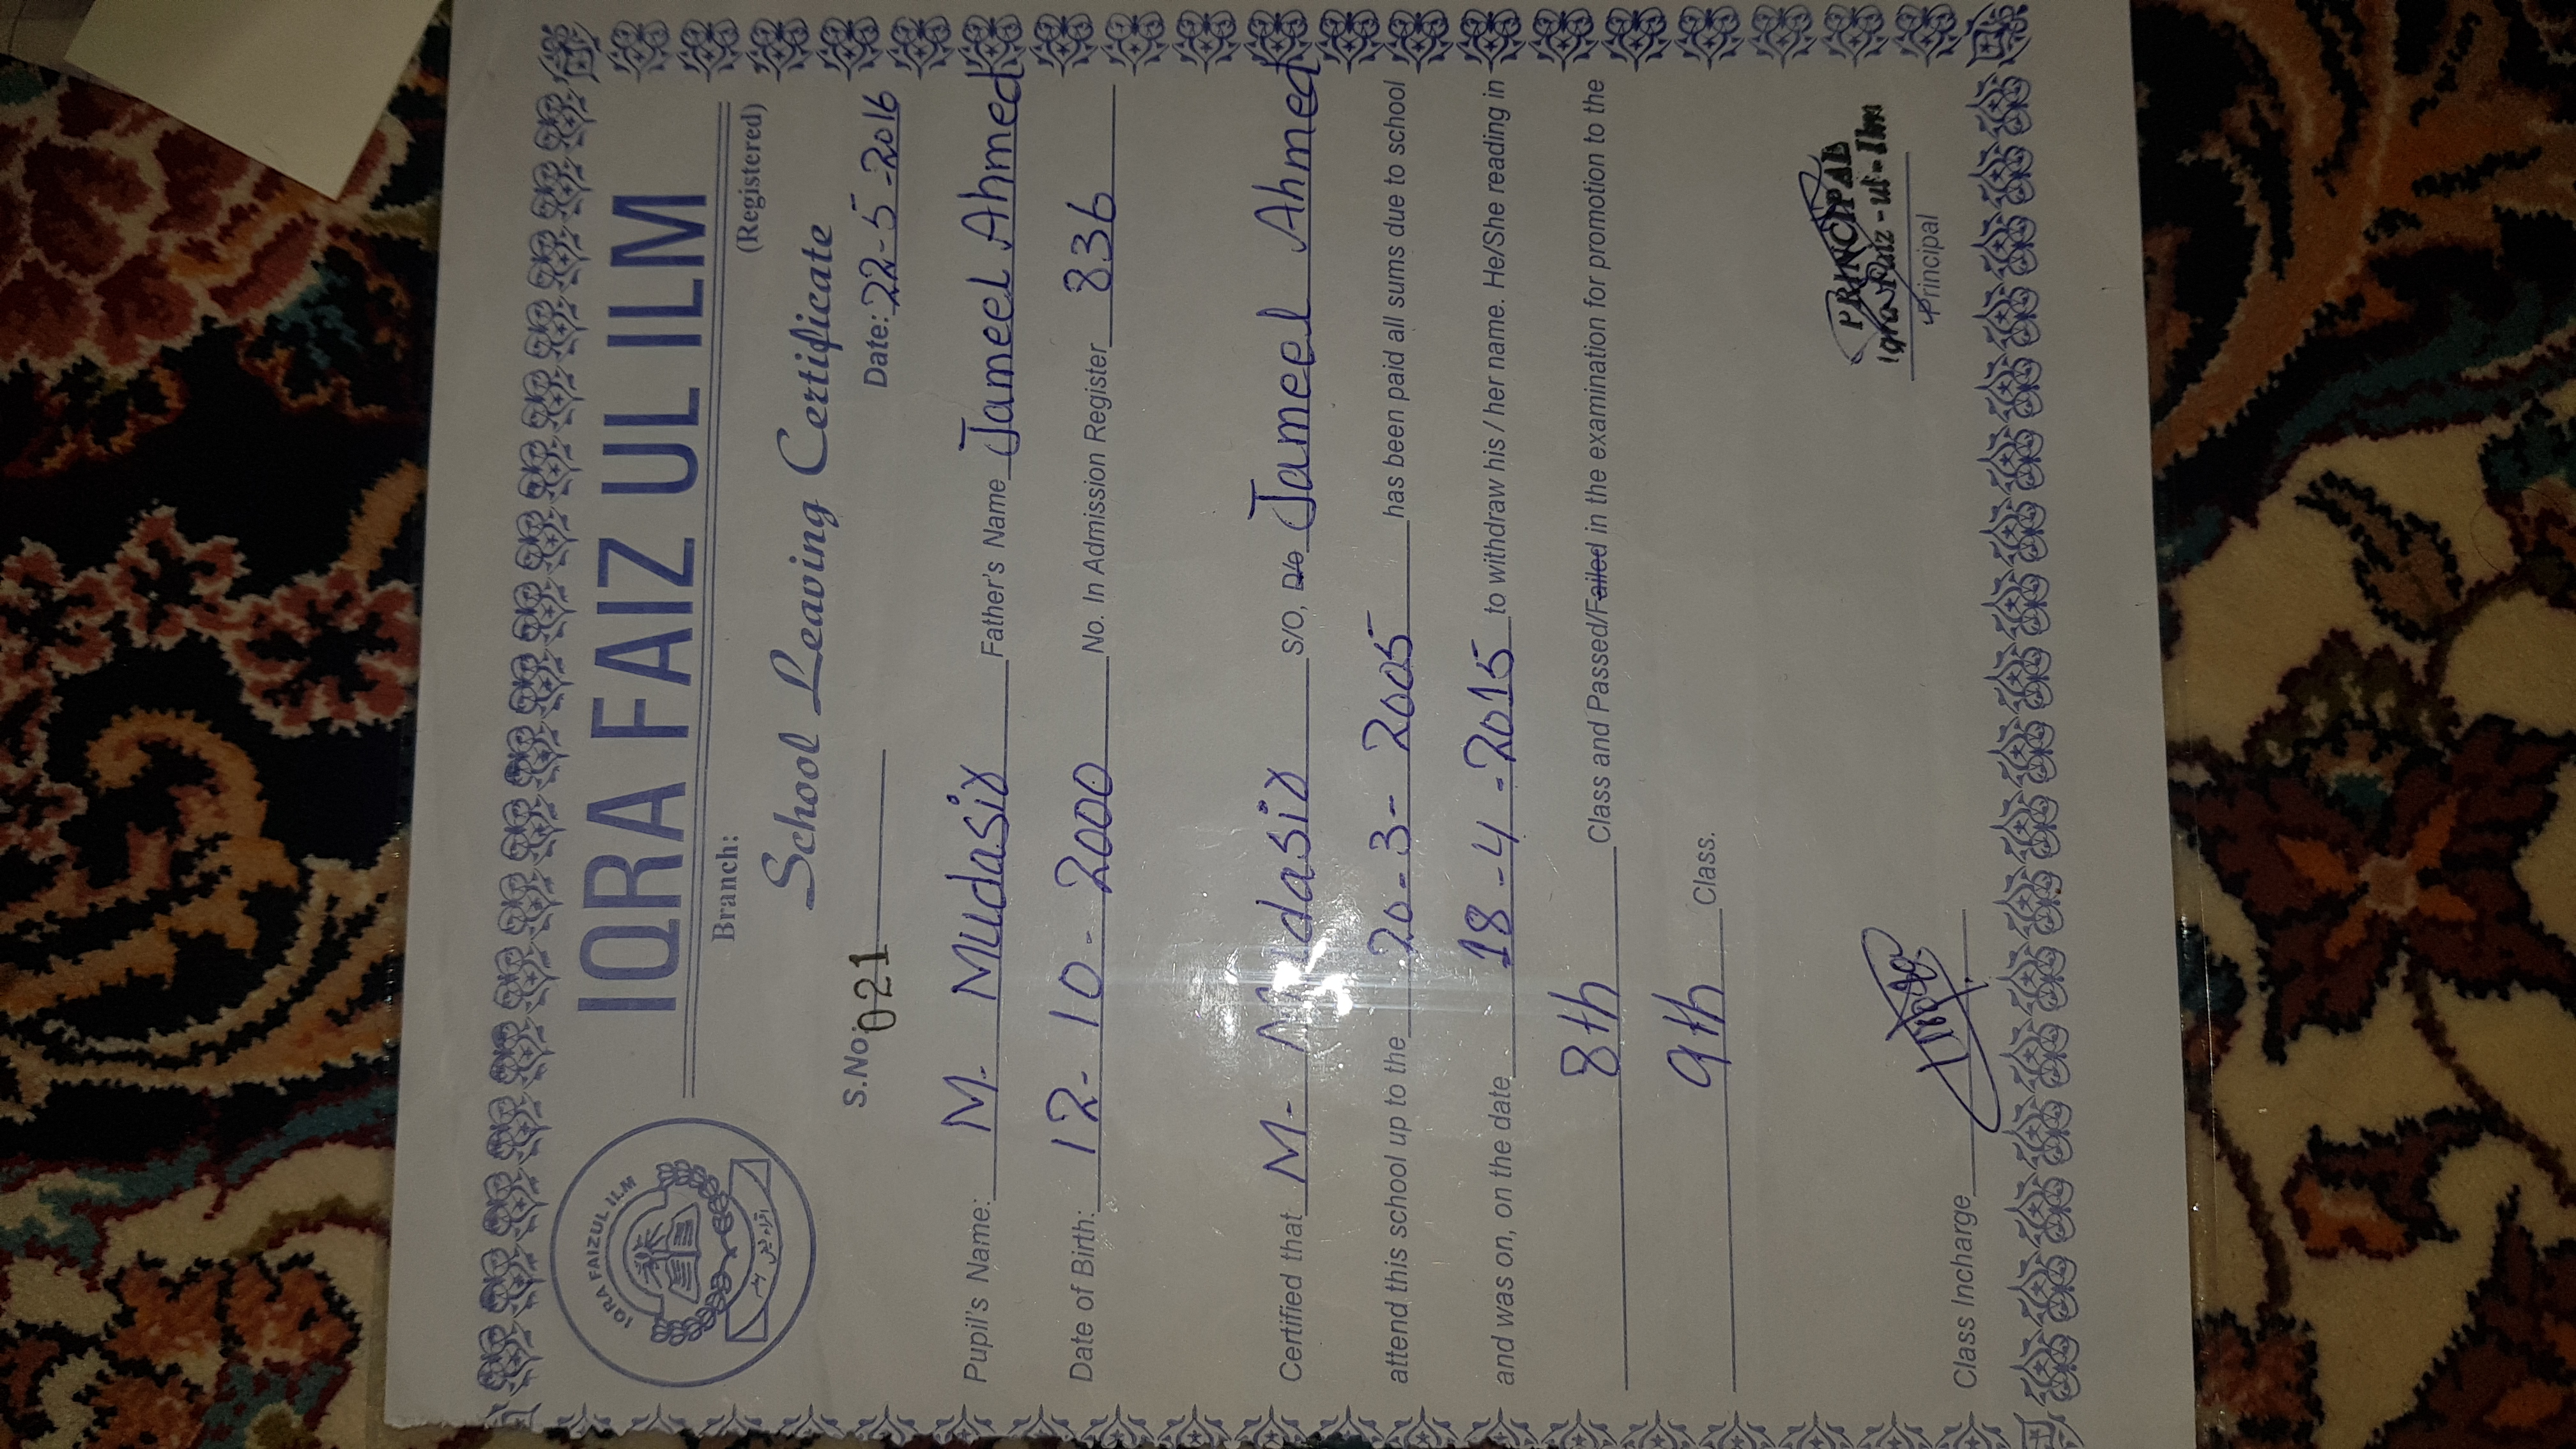 IQRA FAIZUL ILM
IQRA FAIZ UL ILM
Branch: (Registered)
School Leaving Certificate
S.No: 021 Date: 22-5-2016
Pupil's Name: M. Mudasir Father's Name Jameel Ahmed
Date of Birth: 12-10-2000 No. In Admission Register 836
Certified that M. Mudasir S/O, D/o Jameel Ahmed
attend this school up to the 20-3-2005 has been paid all sums due to school
and was on, on the date 18-4-2015 to withdraw his / her name. He/She reading in
8th Class and Passed/Failed in the examination for promotion to the
9th Class.
PRINCIPAL
Iqra Faiz-ul-Ilm
Class Incharge Principal